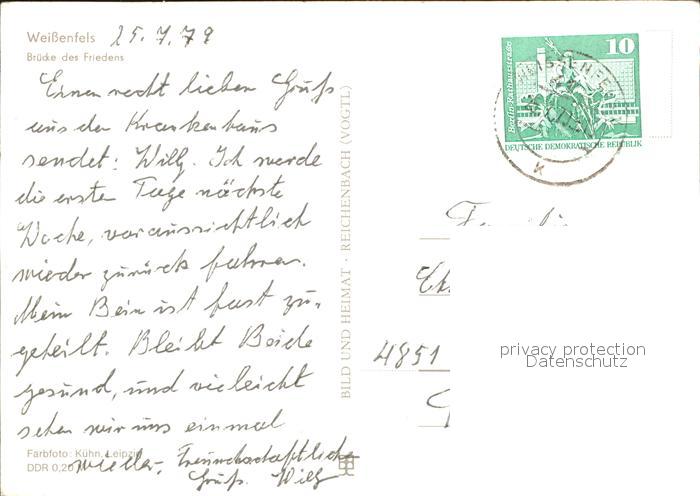 Weißenfels 25.7.79
Brücke des Friedens
Einen recht lieben Gruß
aus den Krankenhaus
sendet: Willy. Ich werde
die ersten Tage nächste
Woche, voraussichtlich
wieder zurück fahren.
Mein Bein ist fast zu-
geheilt. Bleibt Beide
gesund, und vieleicht
sehen wir uns einmal
wieder. Freundschaftliche
Gruß. Willy
Farbfoto: Kühn, Leipzig
DDR 0,20
BILD UND HEIMAT · REICHENBACH (VOGTL)
10
Berlin, Rathausstraße
DEUTSCHE DEMOKRATISCHE REPUBLIK
4851
privacy protection
Datenschutz